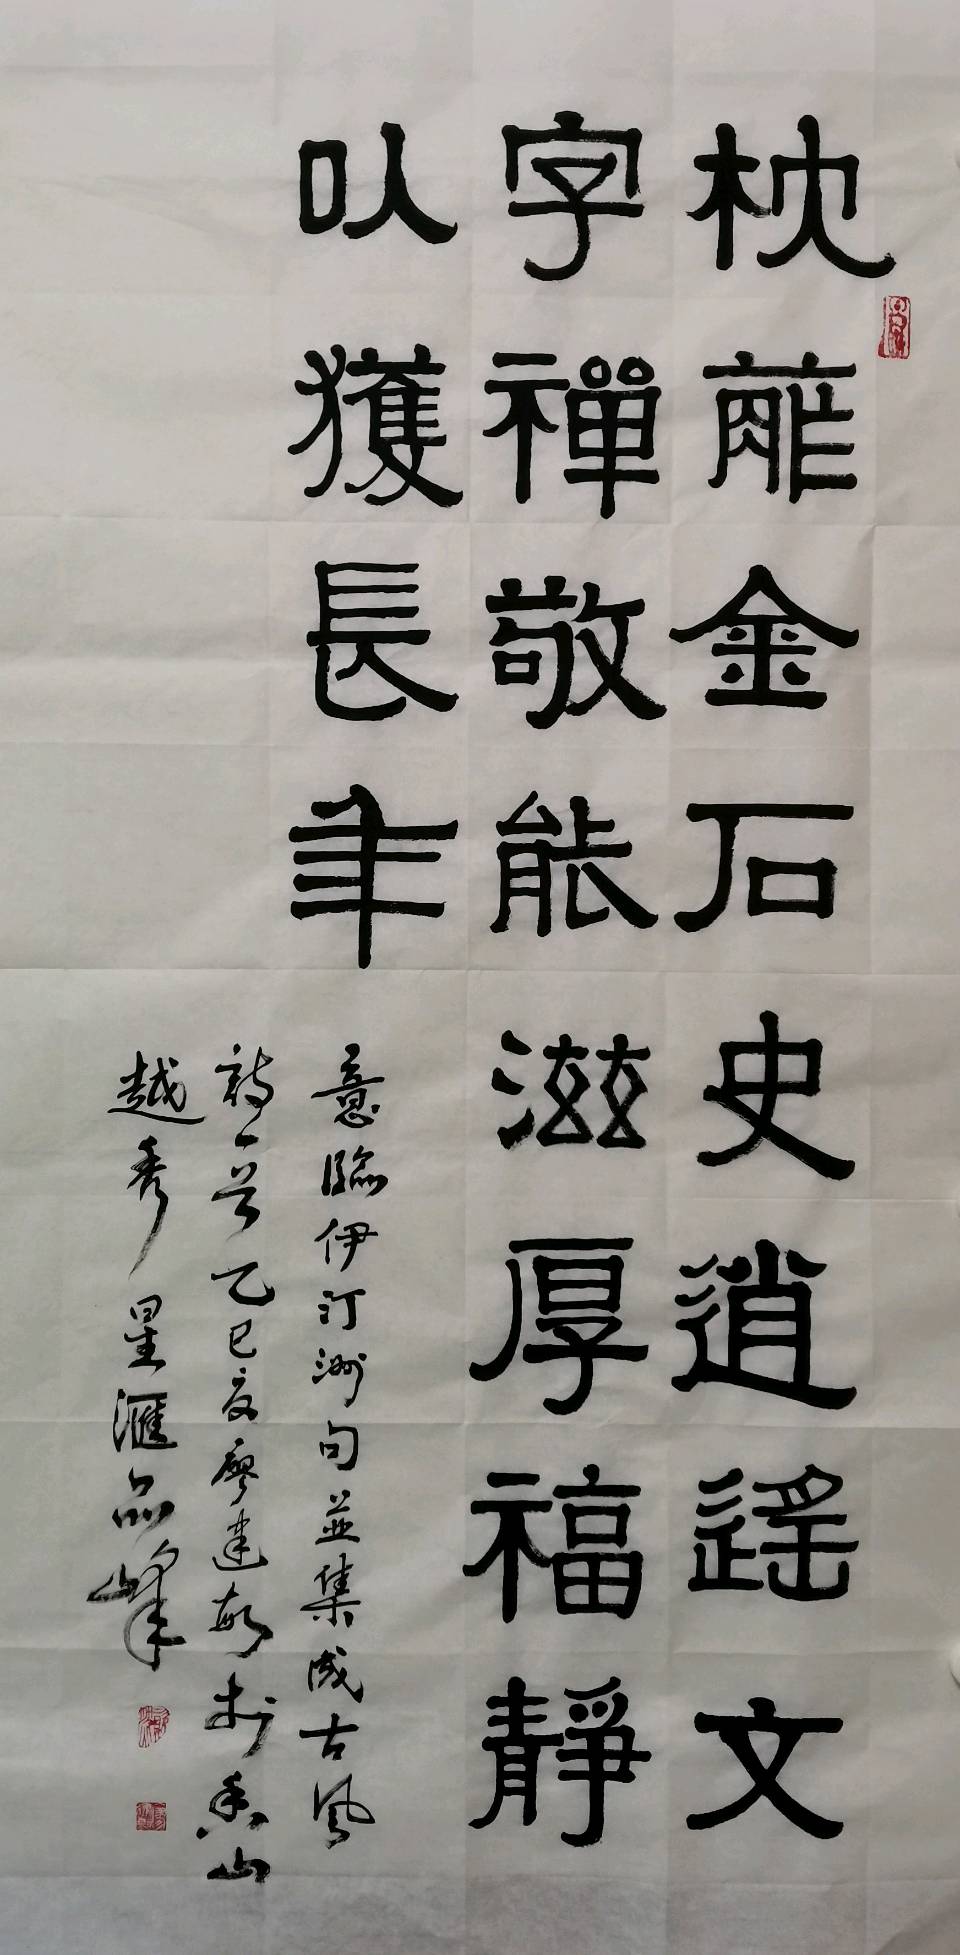 枕葄金石史逍遥文
字禅敬能滋厚福静
以獲長年
意臨伊汀洲句並集成古風
詩一首乙巳夏廖建敏於香山
越秀星滙品峰